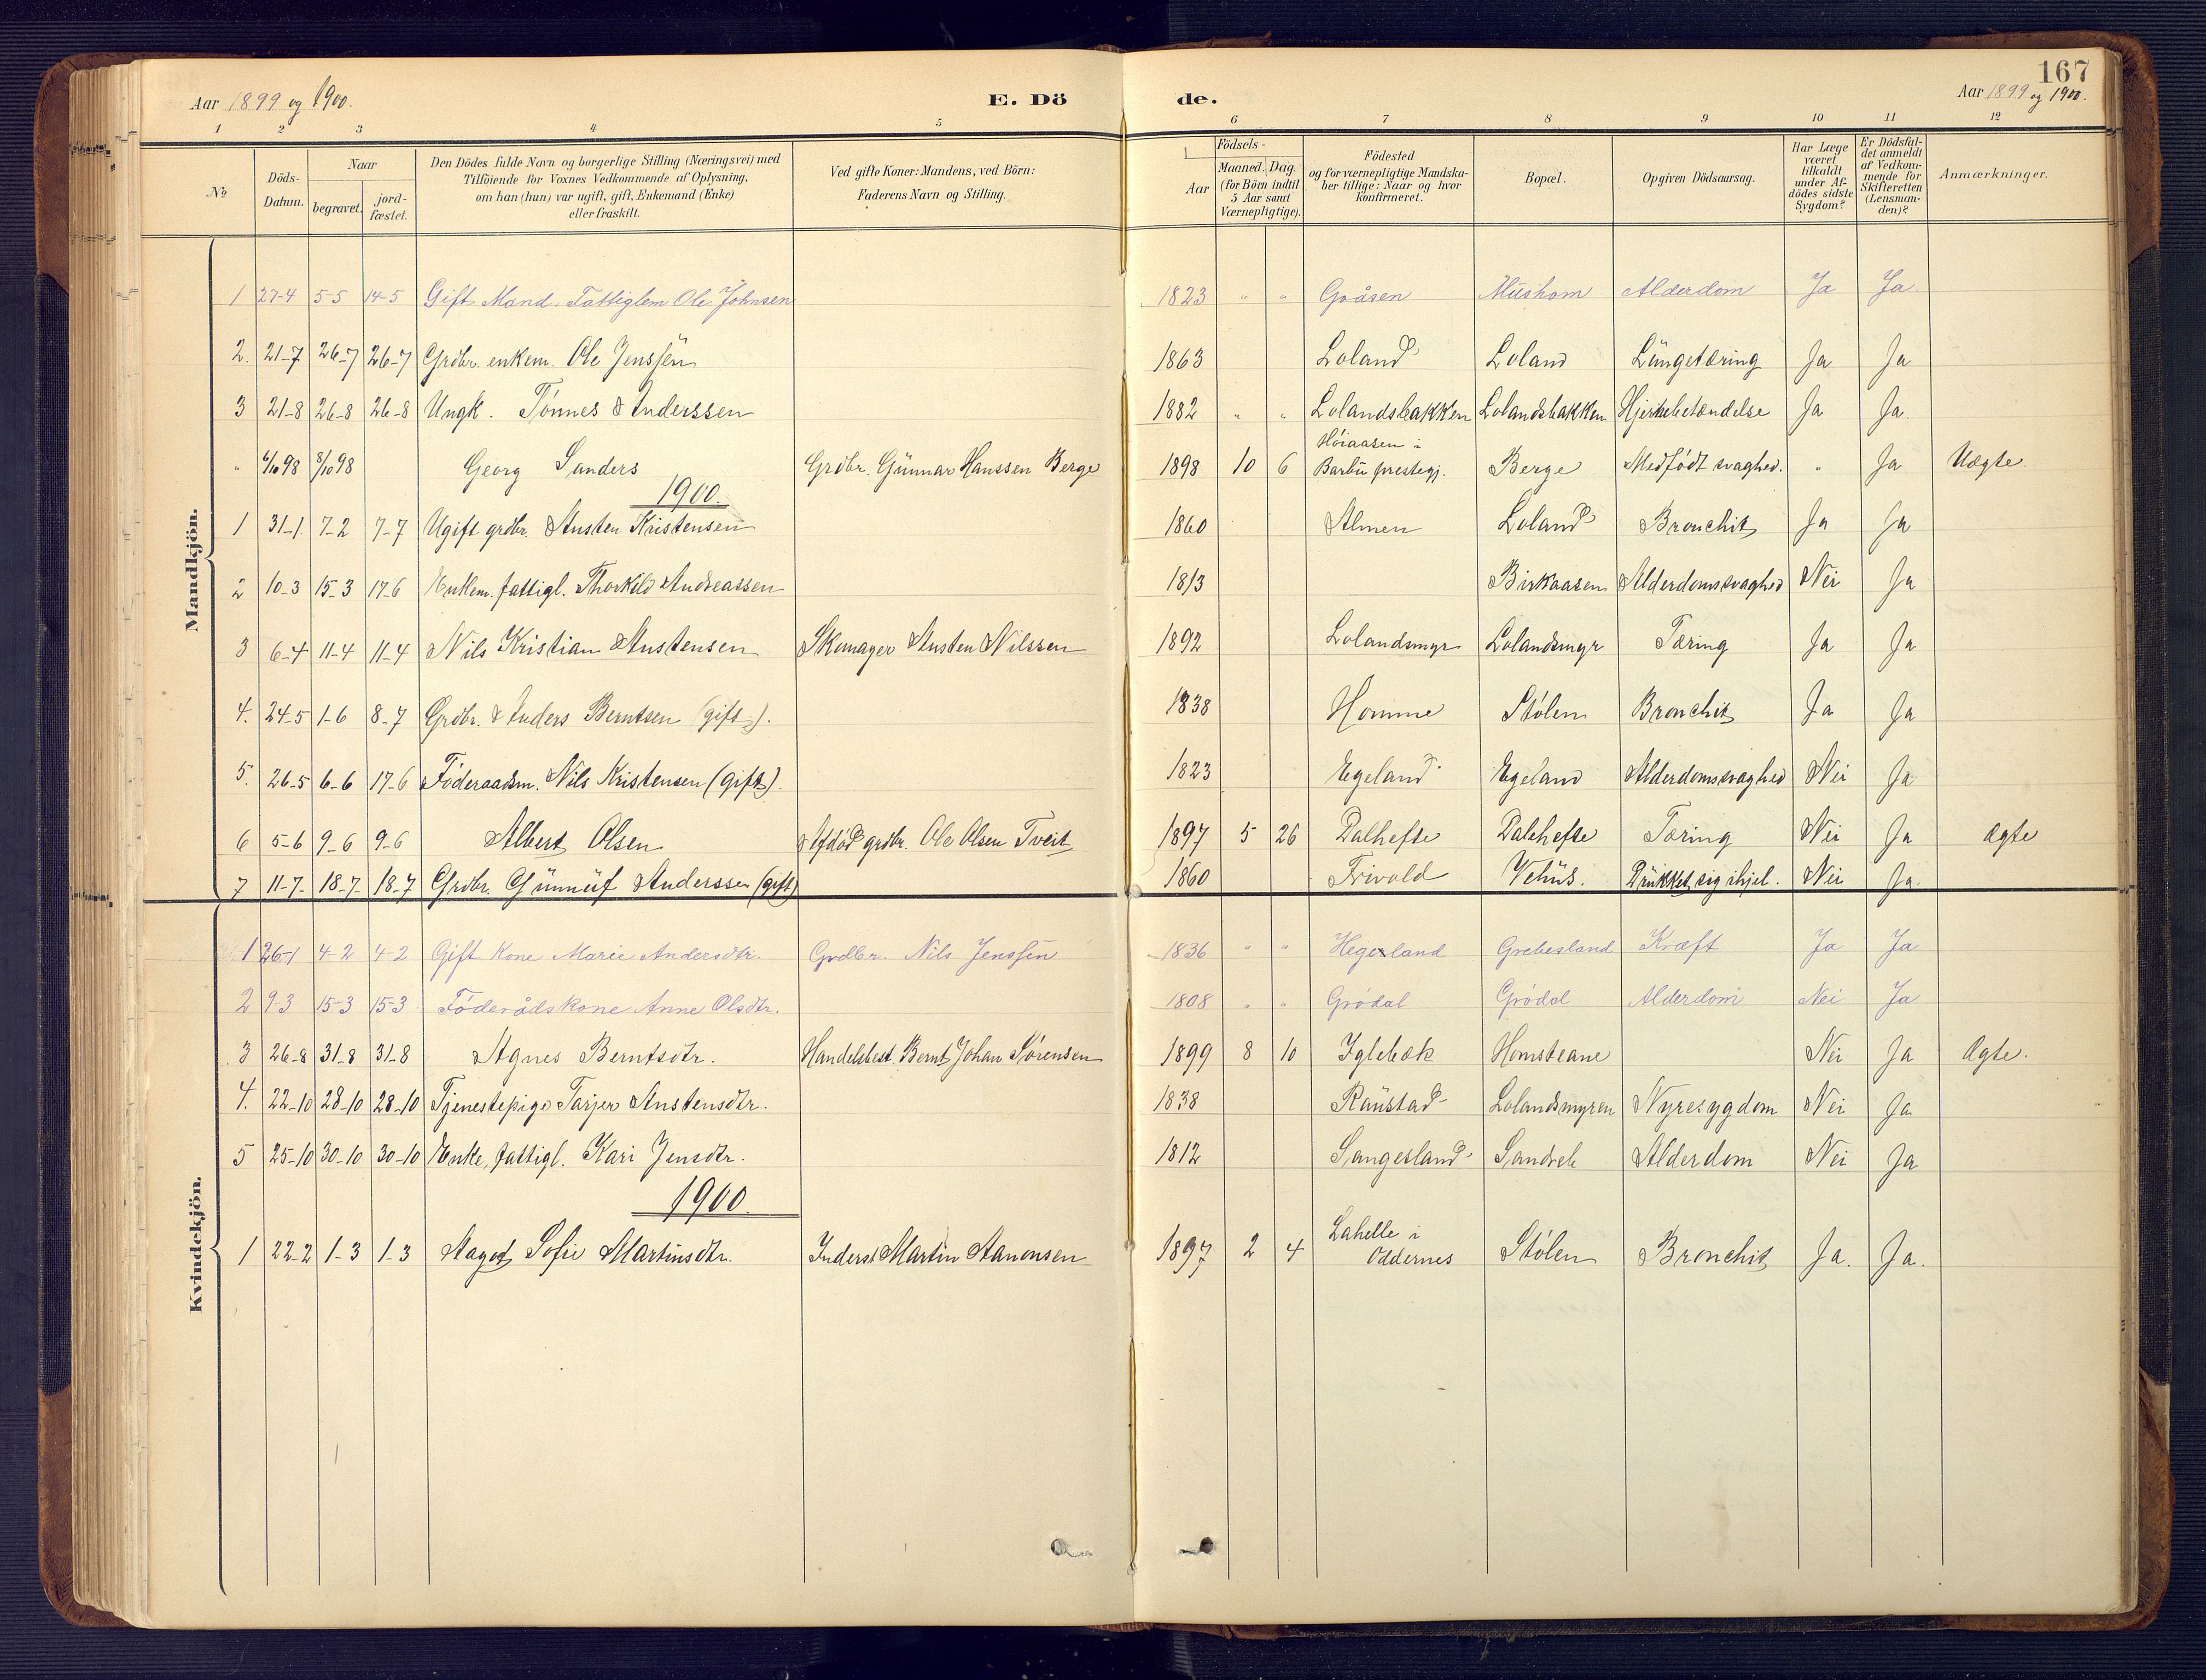 167
Aar 1899 og 1900.
E. Dö
de.
Aar 1899 og 1900.
1 2 3 4 5 6 7 8 9 10 11 12
No
Döds-Datum.
Naar
begravet.
jord-fæstet.
Den Dödes fulde Navn og borgerlige Stilling (Næringsvei) med
Tilföiende for Voxnes Vedkommende af Oplysning,
om han (hun) var ugift, gift, Enkemand (Enke)
eller fraskilt.
Ved gifte Koner: Mandens, ved Börn:
Faderens Navn og Stilling.
Födsels-
Aar
Maaned. Dag.
(for Börn indtil
5 Aar samt
Værnepligtige).
Födested
og for værnepligtige Mandska-
ber tillige: Naar og hvor
konfirmeret.
Bopæl.
Opgiven Dödsaarsag.
Har Læge
været
tilkaldt
under Af-
dödes sidste
Sygdom?
Er Dödsfal-
det anmeldt
af Vedkom-
mende for
Skifteretten
(Lensman-
den)?
Anmærkninger.
Mandkjön.
1 27-4 5-5 14-5 Gift Mand. Fattiglem Ole Johnsen 1823 " " Gråsen Mushom Alderdom Ja Ja
2. 21-7 26-7 26-7 Grdbr. enkem. Ole Jenssen 1863 Loland Loland Lungetæring Ja Ja
3 21-8 26-8 26-8 Ungk. Tönnes Anderssen 1882 " " Lolandsbakken Lolandsbakken Hjernebetændelse Ja Ja
" 6/10 98 8/10 98 Georg Sanders Grdbr. Gunnar Hanssen Berge 1898 10 6 Höiaasen i Barbu prestegj. Berge Medfödt svaghed. " Ja Uægte
1900.
1 31-1 7-2 7-7 Ugift grdbr. Austen Kristensen 1860 Almen Loland Bronchit Ja Ja
2 10-3 15-3 17-6 Enkem. fattigl. Thorkild Andreassen 1813 Birkaasen Alderdomssvaghed Nei Ja
3 6-4 11-4 11-4 Nils Kristian Austensen Skomager Austen Nilssen 1892 Lolandsmyr Lolandsmyr Tæring Ja Ja
4. 24-5 1-6 8-7 Grdbr. Anders Berntsen (gift). 1838 Homme Stölen Bronchit Ja Ja
5. 26-5 6-6 17-6 Föderaadsm. Nils Kristensen (gift). 1823 Egeland Egeland Alderdomssvaghed Nei Ja
6 5-6 9-6 9-6 Albert Olsen Afdöd grdbr. Ole Olsen Tveit 1897 5 26 Dalhefte Dalehefte Tæring Nei Ja Ægte
7 11-7 18-7 18-7 Grdbr. Gunnuf Anderssen (gift) 1860 Frivold Vehus. Drukket sig ihjel. Nei Ja
Kvindekjön.
1 26-1 4-2 4-2 Gift Kone Marie Andersdtr. Grdbr. Nils Jenssen 1836 " " Hegeland Grebesland Kræft Ja Ja
2 9-3 15-3 15-3 Föderådskone Anne Olsdtr. 1808 " " Grödal Grödal Alderdom Nei Ja
3 26-8 31-8 31-8 Agnes Berntsdtr. Handelsbest. Bernt Johan Sörensen 1899 8 10 Iglebæk Homsteane Nei Ja Ægte.
4. 22-10 28-10 28-10 Tjenestepige Tarjer Austensdtr. 1838 Raustad Lolandsmyren Nyresygdom Nei Ja
5 25-10 30-10 30-10 Enke, fattigl. Kari Jensdtr. 1812 Sangesland Sandvek Alderdom Nei Ja
1900.
1 22-2 1-3 1-3 Aagot Sofie Martinsdtr. Inderst Martin Aanonsen 1897 2 4 Lahelle i Oddernes Stölen Bronchit Ja. Ja.